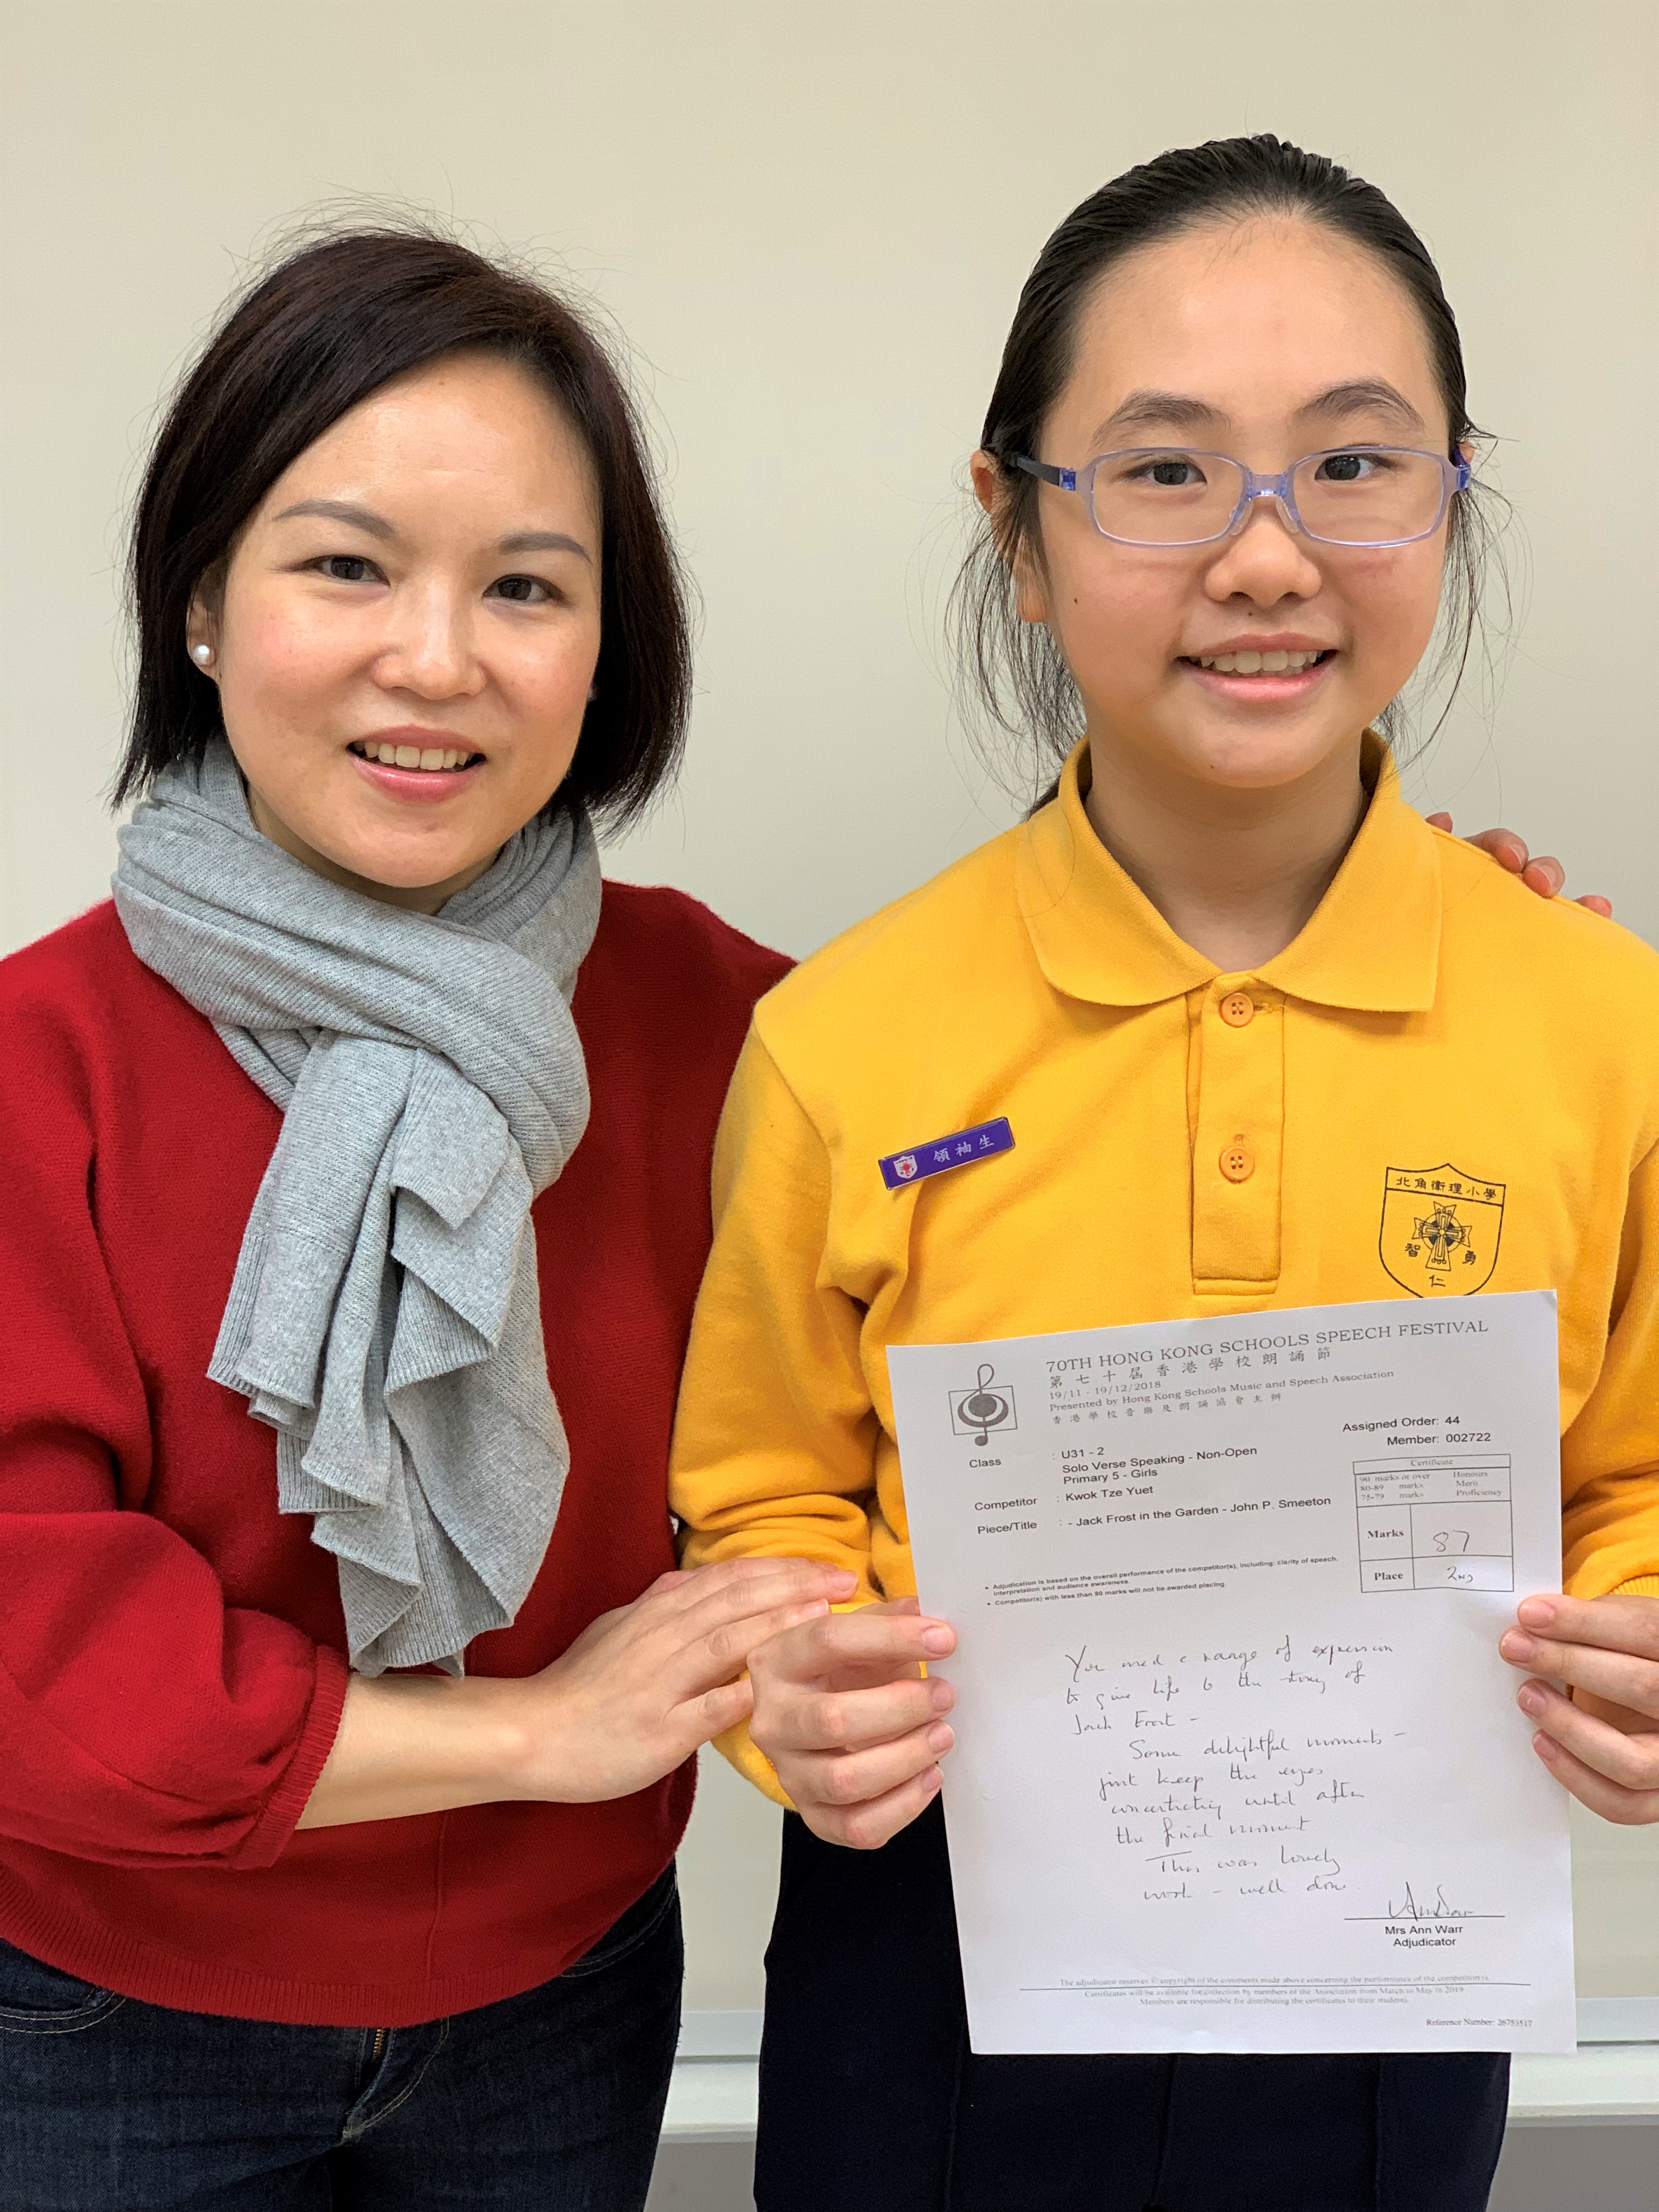 領袖生
北角衛理小學
智 勇
仁
70TH HONG KONG SCHOOLS SPEECH FESTIVAL
第七十屆香港學校朗誦節
19/11 - 19/12/2018
Presented by Hong Kong Schools Music and Speech Association
香港學校音樂及朗誦協會主辦
Assigned Order: 44
Member: 002722
Class : U31 - 2
Solo Verse Speaking - Non-Open
Primary 5 - Girls
Competitor : Kwok Tze Yuet
Piece/Title : - Jack Frost in the Garden - John P. Smeeton
Certificate
90 marks or over Honours
80-89 marks Merit
75-79 marks Proficiency
Marks 87
Place 2nd
• Adjudication is based on the overall performance of the competitor(s), including: clarity of speech,
interpretation and audience awareness.
• Competitor(s) with less than 80 marks will not be awarded placing.
You used a range of expression
to give life to the story of
Jack Frost -
Some delightful moments -
just keep the eyes
concentrating until after
the final moment
This was lovely
work - well done.
Mrs Ann Warr
Adjudicator
The adjudicator reserves © copyright of the comments made above concerning the performance of the competitor(s).
Certificates will be available for collection by members of the Association from March to May in 2019
Members are responsible for distributing the certificates to their students.
Reference Number: 26753517